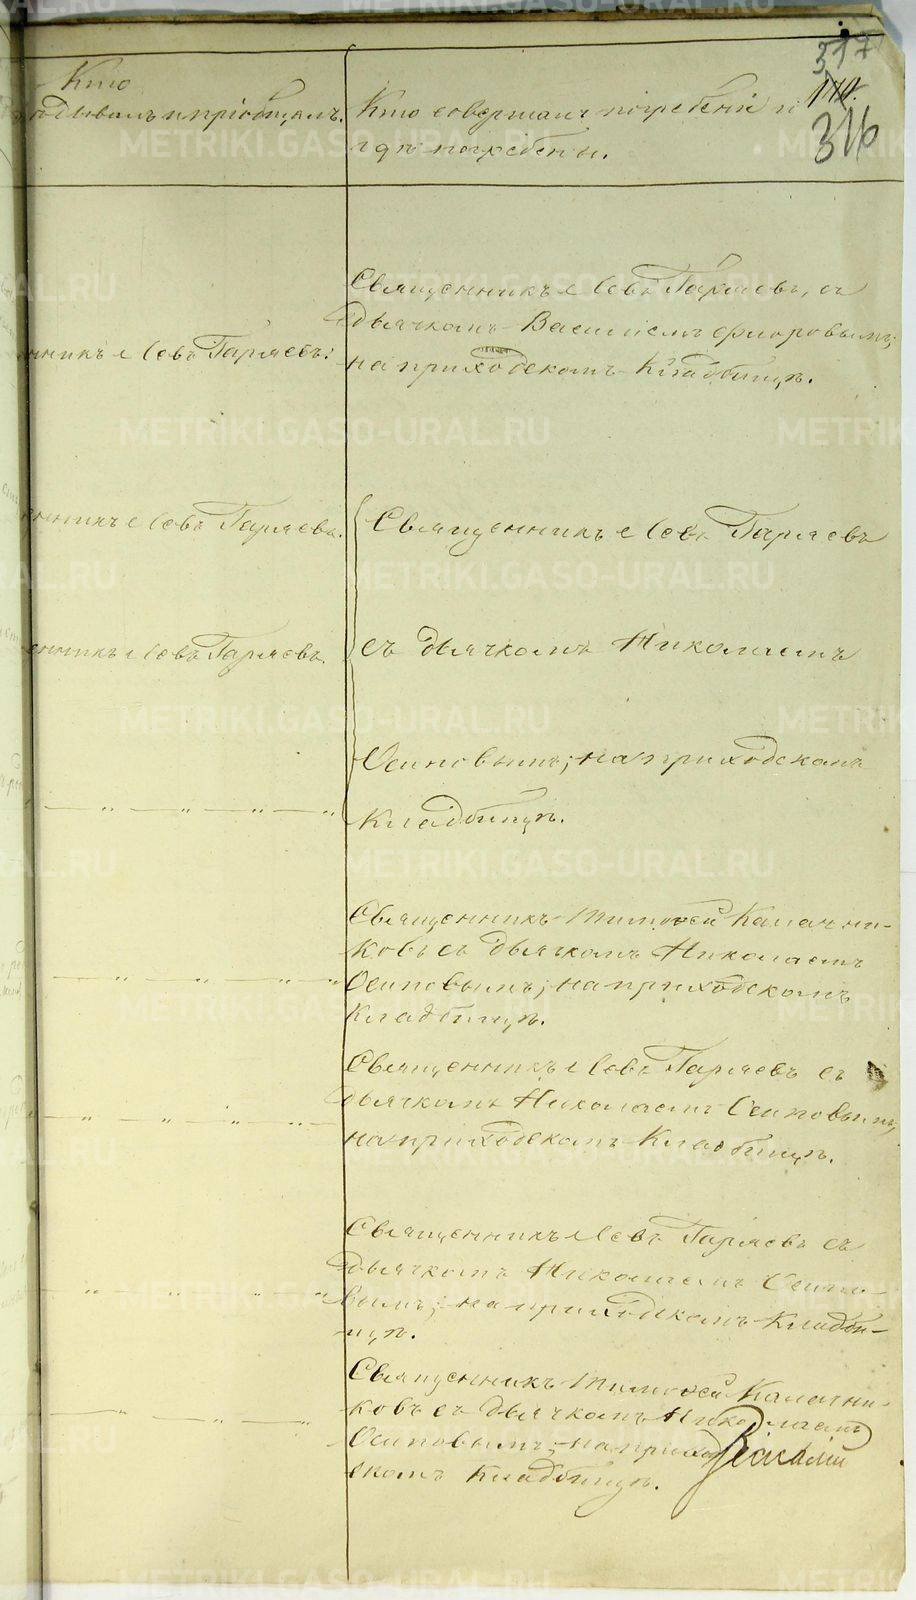 317
Кто
Кто совершалъ погребенiе и
110.
гдѣ погребены.
316
Священникъ Левъ Гаряевъ, съ
дьячкомъ Василiемъ Флоровымъ;
на приходскомъ Кладбищѣ.
нникъ Левъ Гаряевъ.
енникъ Левъ Гаряевъ.
Священникъ Левъ Гаряевъ
енникъ Левъ Гаряевъ.
съ дьячкомъ Николаемъ
Осиповымъ; на приходскомъ
Кладбищѣ.
Священникъ Тимоѳей Калачни-
ковъ съ дьячкомъ Николаемъ
Осиповымъ; на приходскомъ
Кладбищѣ.
Священникъ Левъ Гаряевъ съ
дьячкомъ Николаемъ Осиповымъ,
на приходскомъ Кладбищѣ.
Священникъ Левъ Гаряевъ съ
дьячкомъ Николаемъ Осипо-
вымъ; на приходскомъ Кладби-
щѣ.
Священникъ Тимоѳей Калачни-
ковъ съ дьячкомъ Николаемъ
Осиповымъ; на приход
скомъ Кладбищѣ.
METRIKI.GASO-URAL.RU